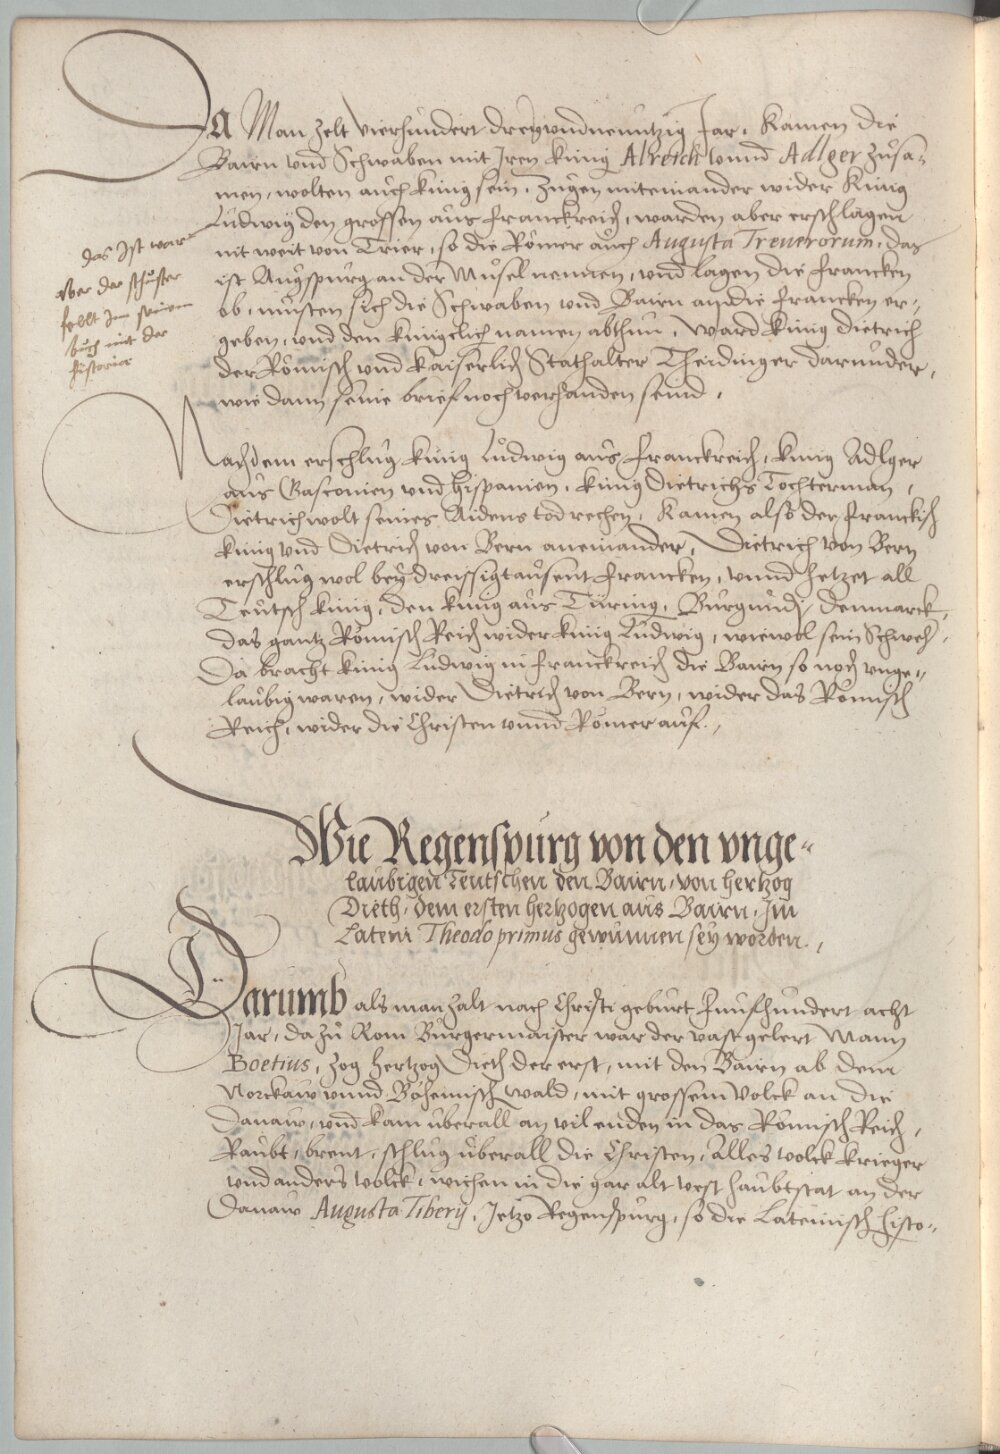 DA Man zelt vierhundert dreyundneuntzig Jar, kamen die
Bairn vnd Schwaben mit Iren künig Alreich vnnd Adlger zůsa-
men, wolten auch künig sein, Zugen miteinander wider Künig
Ludwig den grossen aus Franckreich, warden aber erschlagen
nit weit von Trier, so die Römer auch Augusta Treuerorum, das
ist Augspurg an der Musel nennen, vnd lagen die Francken
ob, müsten sich die Schwaben vnd Bairn an die Francken er-
geben, vnd den künigclich namen abthun, Ward künig Dietrich
der Römisch vnd kaiserlich Stathalter Theidinger darunder,
wie dann seine brief noch verhanden seind.
das Ist war
aber der schuster
felt Im seinem
buch mit der
historia
Nachdem erschlug künig Ludwig aus Franckreich, künig Adlger
aus Gasconien vnd Hispanien, künig Dietrichs Tochterman,
Dietrich wolt seines Aidens tod rechen, Kamen also der Franckisch
künig vnd Dietrich von Bern aneinander, Dietrich von Bern
erschlug wol bey dreissigtausent Francken, vnnd hetzet all
Teutsch künig, den künig aus Türing, Burgundj, Denmarck,
das gantz Römisch Reich wider künig Ludwig, wiewol sein Schweh.
Da bracht künig Ludwig in Franckreich die Bairn so noch vnge-
laubig waren, wider Dietrich von Bern, wider das Römisch
Reich, wider die Christen vnnd Römer auf.
Wie Regenspurg von den vnge-
laubigen Teutschen den Bairn, von hertzog
Dieth, dem ersten hertzogen aus Bairn, Im
Latein Theodo primus gewunnen sey worden.
Darumb als man zalt nach Christi geburt Funfhundert acht
Jar, da zů Rom Burgermaister war der vast gelert Mann
Boetius, zog Hertzog Dieth der erst, mit den Bairn ab dem
Norckaw vnnd Böhemisch wald, mit grossem Volck an die
Danaw, vnd kam überall an vil enden in das Römisch Reich,
Raubt, brent, schlug überall die Christen, Alles volck krieger
vnd anders volck, wichen in die gar alt vest haubtstat an der
Danaw Augusta Tiberij, Jetzo Regenspurg, so die Lateinisch histo-